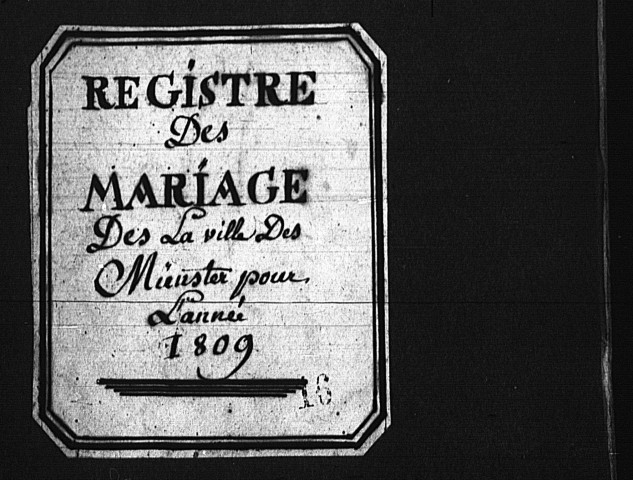 REGiSTRE
Des
MARiAGE
Des La ville Des
Münster pour
L'année
1809
16